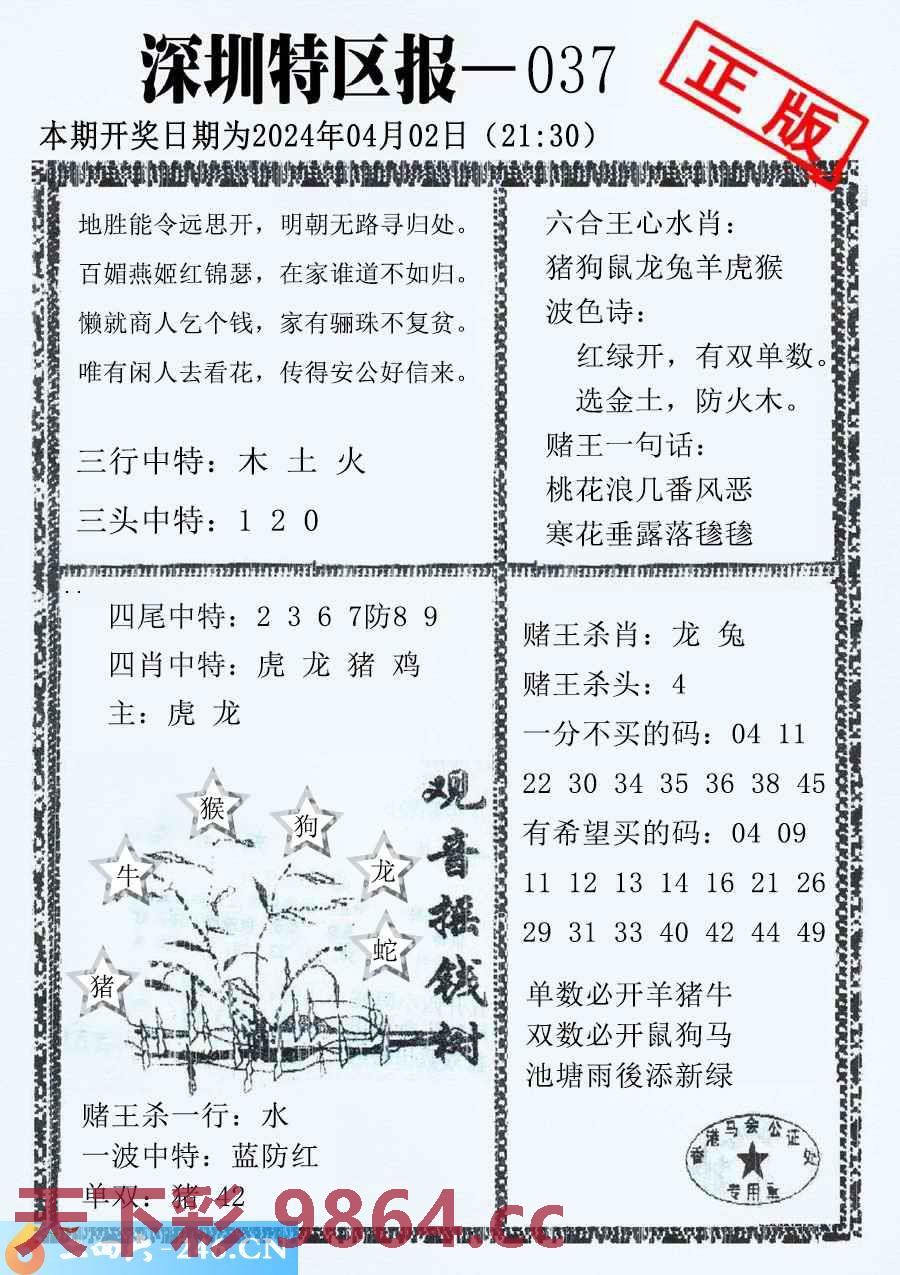 深圳特区报—037
正版
本期开奖日期为2024年04月02日（21:30）
地胜能令远思开，明朝无路寻归处。
百媚燕姬红锦瑟，在家谁道不如归。
懒就商人乞个钱，家有骊珠不复贫。
唯有闲人去看花，传得安公好信来。
三行中特：木 土 火
三头中特：1 2 0
六合王心水肖：
猪狗鼠龙兔羊虎猴
波色诗：
红绿开，有双单数。
选金土，防火木。
赌王一句话：
桃花浪几番风恶
寒花垂露落毶毶
四尾中特：2 3 6 7防8 9
四肖中特：虎 龙 猪 鸡
主：虎 龙
猴
狗
牛
龙
蛇
猪
观音摇钱树
赌王杀一行：水
一波中特：蓝防红
单双：猪 42
赌王杀肖：龙 兔
赌王杀头：4
一分不买的码：04 11
22 30 34 35 36 38 45
有希望买的码：04 09
11 12 13 14 16 21 26
29 31 33 40 42 44 49
单数必开羊猪牛
双数必开鼠狗马
池塘雨後添新绿
香港马会公证处
专用章
天下彩 9864.cc
-246.CN